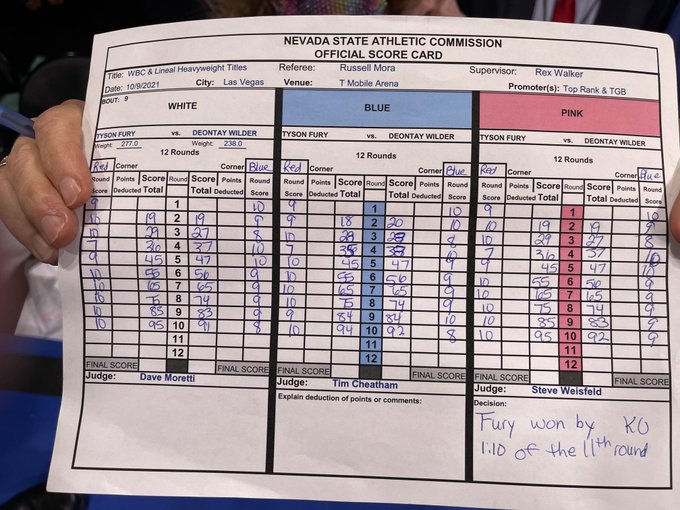 NEVADA STATE ATHLETIC COMMISSION
OFFICIAL SCORE CARD
Title: WBC & Lineal Heavyweight Titles Referee: Russell Mora Supervisor: Rex Walker
Date: 10/9/2021 City: Las Vegas Venue: T Mobile Arena Promoter(s): Top Rank & TGB
BOUT: 9
WHITE BLUE PINK
TYSON FURY vs. DEONTAY WILDER TYSON FURY vs. DEONTAY WILDER TYSON FURY vs. DEONTAY WILDER
Weight: 277.0 Weight: 238.0
12 Rounds 12 Rounds 12 Rounds
Red Corner Corner Blue Red Corner Corner Blue Red Corner Corner Blue
Round Score Points Deducted Score Total Round Score Total Points Deducted Round Score Round Score Points Deducted Score Total Round Score Total Points Deducted Round Score Round Score Points Deducted Score Total Round Score Total Points Deducted Round Score
9 1 10 9 1 10 9 1 10
10 19 2 19 9 9 18 2 20 10 10 19 2 19 9
10 29 3 27 8 10 3 8 10 29 3 27 8
7 36 4 37 10 7 4 10 7 36 4 37 10
9 45 5 47 10 45 5 47 9 45 5 47 10
10 55 6 56 9 10 55 6 56 9 10 55 6 56 9
10 65 7 65 9 10 65 7 65 9 10 65 7 65 9
10 75 8 74 9 10 75 8 74 9 10 75 8 74 9
10 85 9 83 9 9 84 9 84 10 10 85 9 83 9
10 95 10 91 8 10 94 10 92 8 10 95 10 92 9
11 11 11
12 12 12
FINAL SCORE FINAL SCORE FINAL SCORE FINAL SCORE FINAL SCORE FINAL SCORE
Judge: Dave Moretti Judge: Tim Cheatham Judge: Steve Weisfeld
Explain deduction of points or comments: Decision:
Fury won by KO
1:10 of the 11th round